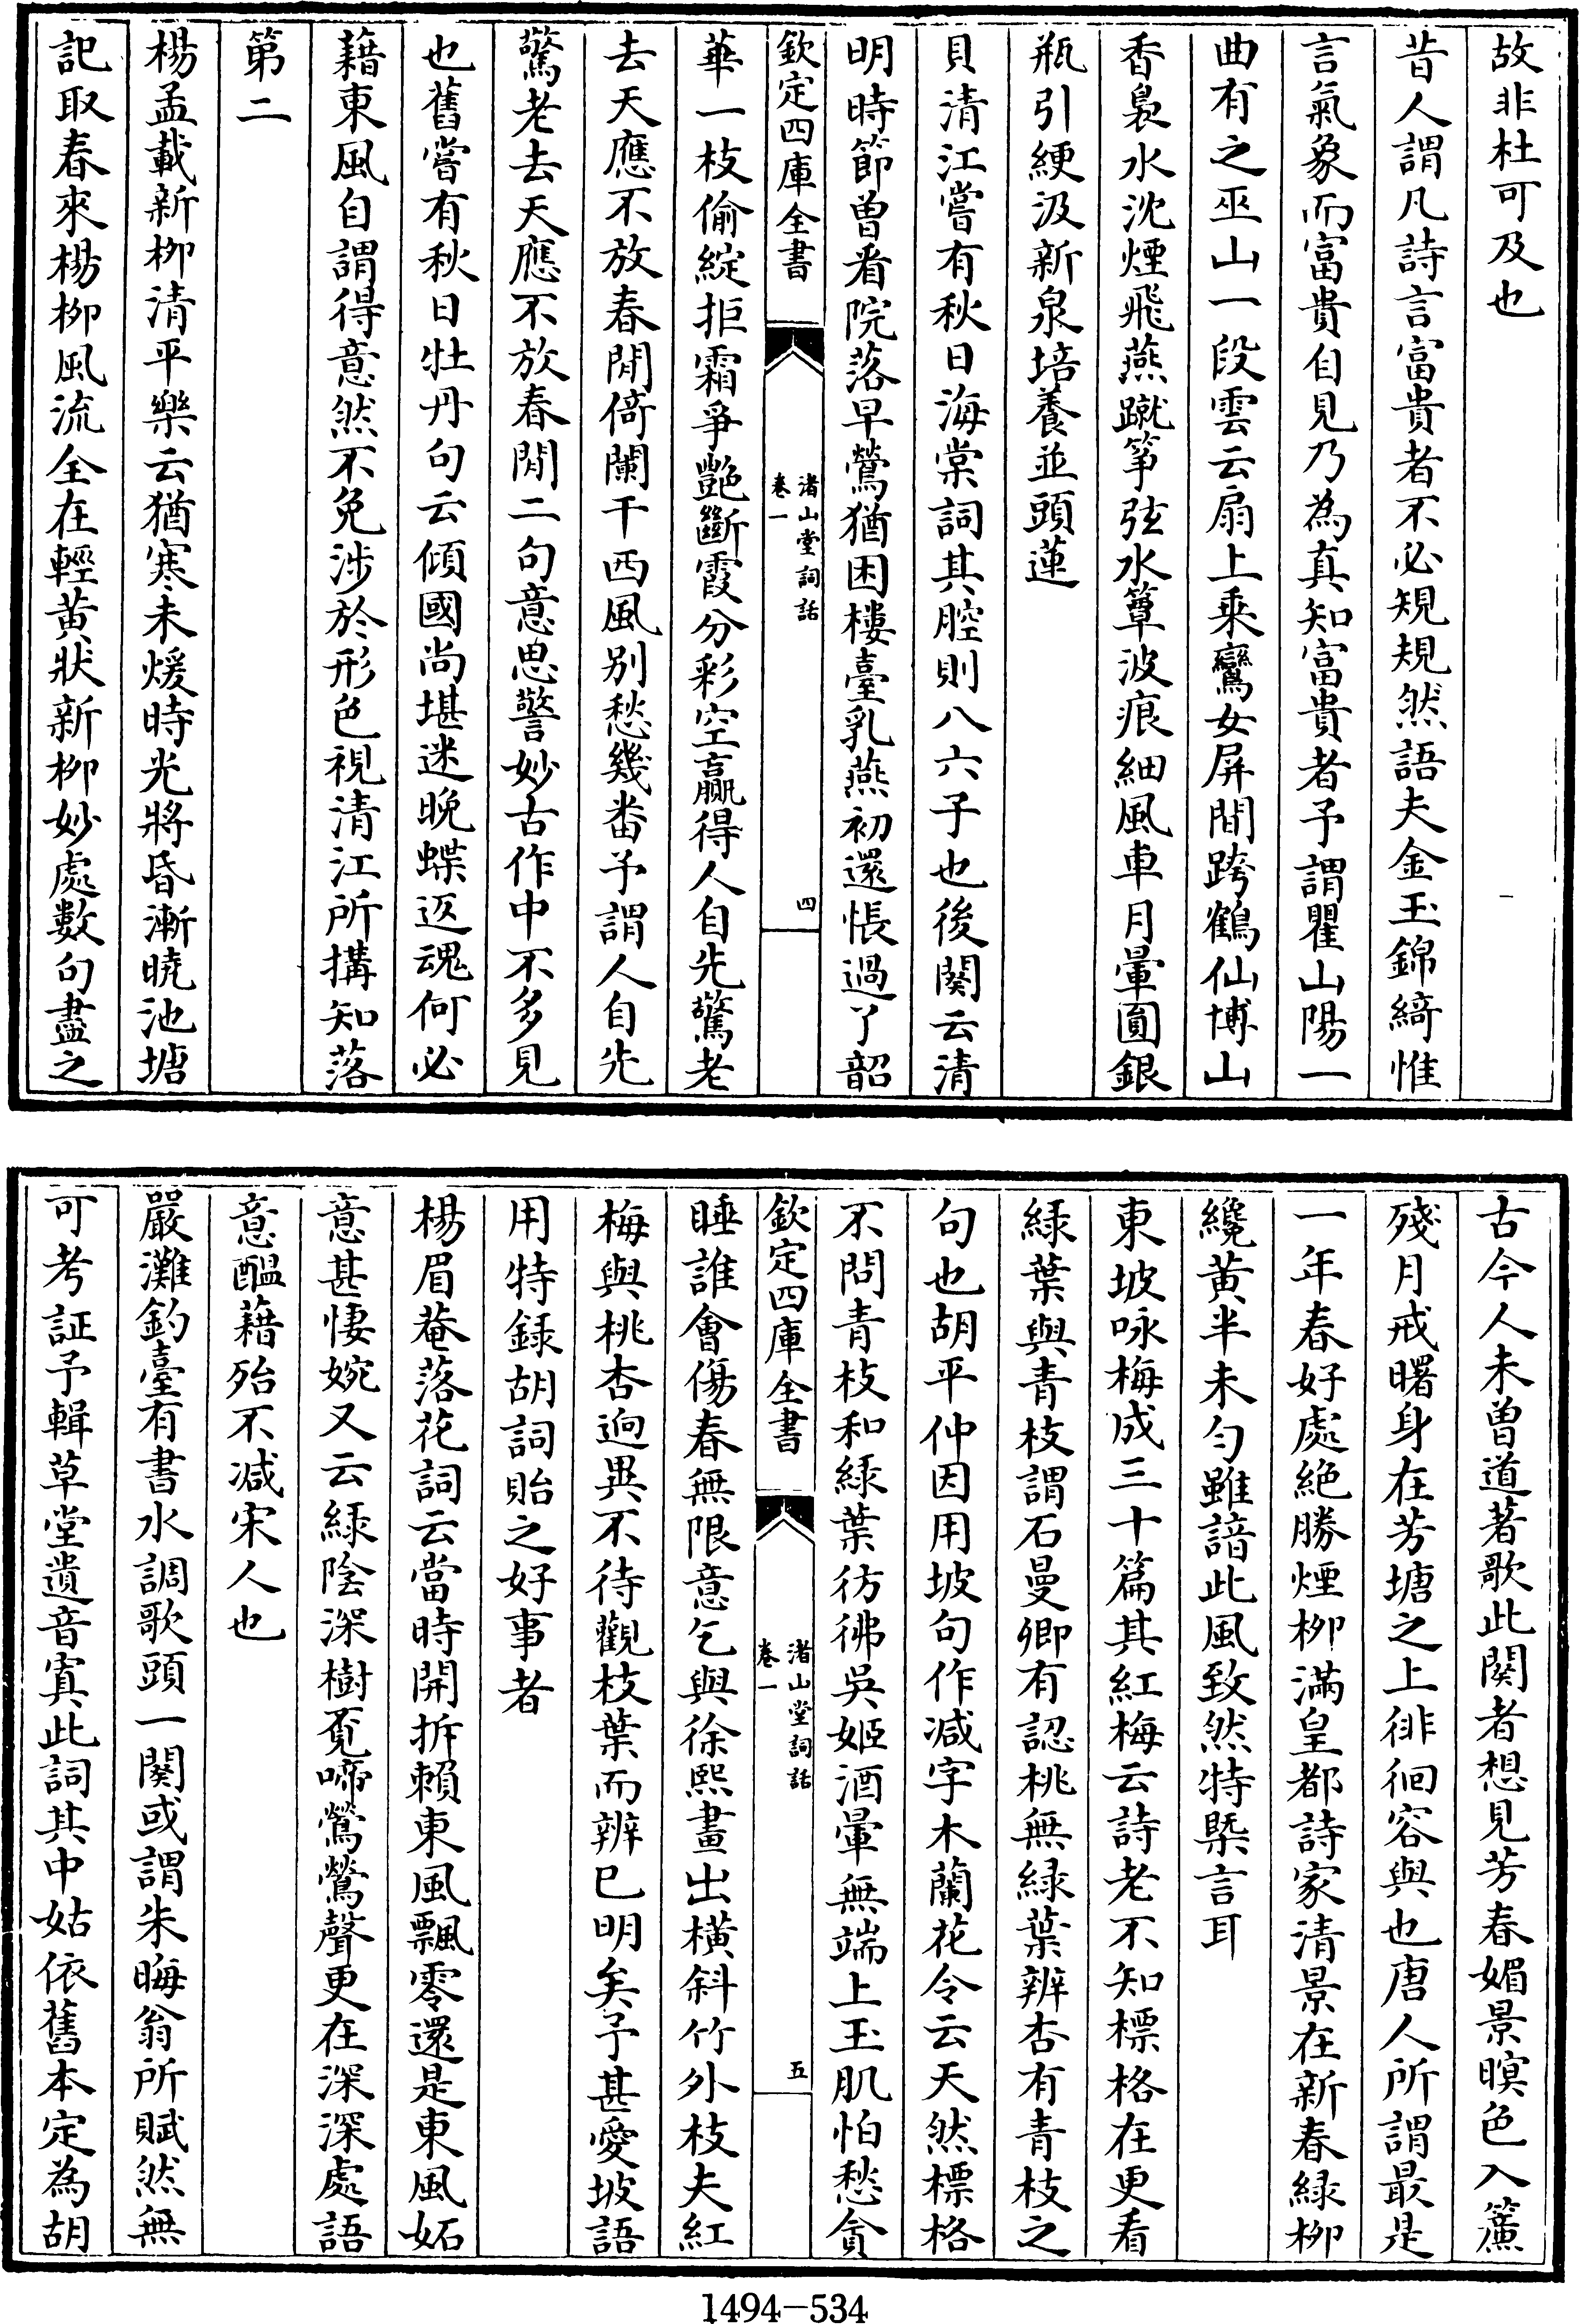 故非杜可及也
昔人謂凡詩言富貴者不必規規然語夫金玉錦綺惟
言氣象而富貴自見乃為真知富貴者予謂瞿山陽一
曲有之巫山一段雲云扇上乘鸞女屏間跨鶴仙博山
香裊水沈煙飛燕蹴筝弦水簟波痕細風車月暈圓銀
瓶引綆汲新泉培養並頭蓮
貝清江嘗有秋日海棠詞其腔則八六子也後闋云清
明時節曽看院落早鶯猶困樓臺乳燕初還悵過了韶
欽定四庫全書
渚山堂詞話
卷一
四
華一枝偷綻拒霜爭艷斷霞分彩空贏得人自先驚老
去天應不放春閒倚闌干西風别愁幾畨予謂人自先
驚老去天應不放春閒二句意思警妙古作中不多見
也舊嘗有秋日牡丹句云傾國尚堪迷晚蝶返魂何必
藉東風自謂得意然不免涉於形色視清江所搆知落
第二
楊孟載新柳清平樂云猶寒未煖時光將昏漸曉池塘
記取春來楊柳風流全在輕黄狀新柳妙處數句盡之
古今人未曾道著歌此闋者想見芳春媚景暝色入簾
殘月戒曙身在芳塘之上徘徊容與也唐人所謂最是
一年春好處絶勝煙柳滿皇都詩家清景在新春緑柳
纔黄半未匀雖諳此風致然特槩言耳
東坡咏梅成三十篇其紅梅云詩老不知標格在更看
緑葉與青枝謂石曼卿有認桃無緑葉辨杏有青枝之
句也胡平仲因用坡句作减字木蘭花令云天然標格
不問青枝和緑葉彷彿吳姬酒暈無端上玉肌怕愁貪
欽定四庫全書
渚山堂詞話
卷一
五
睡誰會傷春無限意乞與徐熙畫出橫斜竹外枝夫紅
梅與桃杏迥異不待觀枝葉而辨已明矣予甚愛坡語
用特録胡詞貽之好事者
楊眉菴落花詞云當時開拆賴東風飄零還是東風妬
意甚悽婉又云緑陰深樹覔啼鶯鶯聲更在深深處語
意醖藉殆不减宋人也
嚴灘釣臺有書水調歌頭一闋或謂朱晦翁所賦然無
可考証予輯草堂遺音寘此詞其中姑依舊本定為胡
1494-534